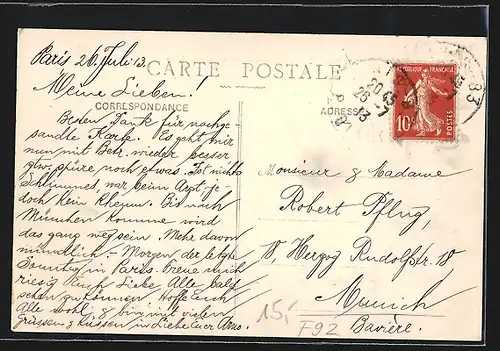 Paris 26. Juli 13.
CARTE POSTALE
Meine Lieben!
CORRESPONDANCE
ADRESSE
RÉPUBLIQUE FRANÇAISE
10c
POSTES
Besten Dank für nachge-
sandte Karte. Es geht mir
nun mit wieder besser
spüre noch etwas. Ist nichts
Schlimmes, war beim Arzt je-
doch kein Rheum. Bis nach
München komme wird
das ganz weg sein. Mehr davon
mündlich. - Morgen der letzte
Sonntag in Paris. Freue mich
riesig Euch Liebe Alle bald
sehen zu können. Hoffe Euch
Alle wohl & bin mit vielen
Grüssen & Küssen in Liebe Euer
Monsieur & Madame
Robert Pflug,
18, Herzog Rudolfstr. 18
Munich
Bavière.
15,-
F92